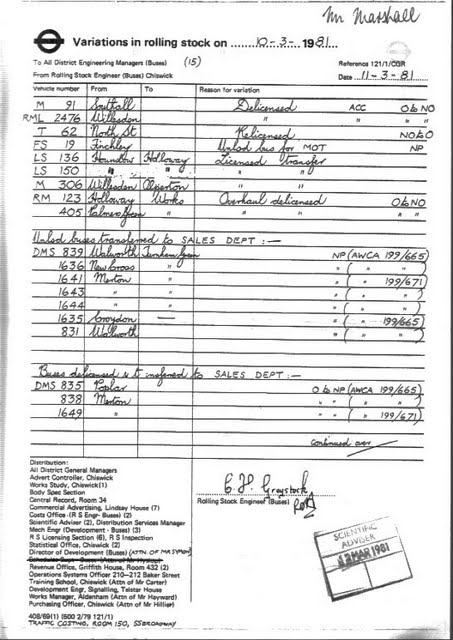 Mr Marshall
Variations in rolling stock on 10-3-1981
To All District Engineering Managers (Buses) (15) Reference 121/1/CGR
From Rolling Stock Engineer (Buses) Chiswick Date 11-3-81
Vehicle number From To Reason for variation
M 91 Southall Delicensed ACC O to NO
RML 2476 Willesden " " O to NO
T 62 North St Relicensed NO to O
FS 19 Finchley Unlsd bus for MOT NP
LS 136 Hounslow Holloway Licensed transfer
LS 150 " " " "
M 306 Willesden Alperton " "
RM 123 Holloway Works Overhaul delicensed O to NO
405 Palmers Green " " " " "
Unlsd buses transferred to SALES DEPT :—
DMS 839 Walworth Turnham Green NP (AWCA 199/665)
1636 New Cross " " ( " " )
1641 Merton " " ( " 199/671)
1643 " " " ( " " )
1644 " " " ( " " )
1635 Croydon — " ( " 199/665)
831 Walworth " ( " " )
Buses delicensed & transferred to SALES DEPT :—
DMS 835 Poplar O to NP (AWCA 199/665)
838 Merton " " ( " " )
1649 " " " ( " 199/671)
Continued over
Distribution:
All District General Managers
Advert Controller, Chiswick
Works Study, Chiswick(1)
Body Spec Section
Central Record, Room 34
Commercial Advertising, Lindsay House (7)
Costs Office (R S Engr- Buses) (2)
Scientific Adviser (2), Distribution Services Manager
Mech Engr (Development - Buses) (3)
R S Licensing Section (6), R S Inspection
Statistical Office, Chiswick (2)
Director of Development (Buses) (ATTN OF MR SYMON)
Schedules Supt- Buses (Attn of Mr
Revenue Office, Griffith House, Room 432 (2)
Operations Systems Officer 210–212 Baker Street
Training School, Chiswick (Attn of Mr Carter)
Development Engr, Signalling, Telstar House
Works Manager, Aldenham (Attn of Mr Hayward)
Purchasing Officer, Chiswick (Attn of Mr Hillier)
408/69(1) (500 2/79 121/1)
TRAFFIC COSTING, ROOM 150, 55 BROADWAY
Rolling Stock Engineer (Buses)
SCIENTIFIC
ADVISER
12 MAR 1981